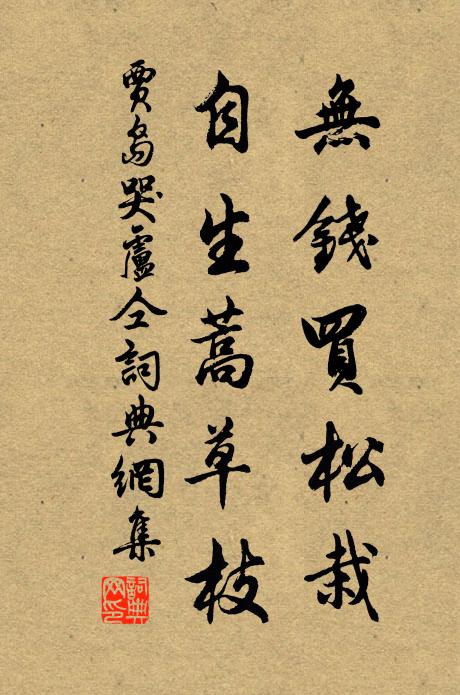 無錢買松栽
自生蒿草枝
賈島哭盧仝詞典網集
詞典
网印